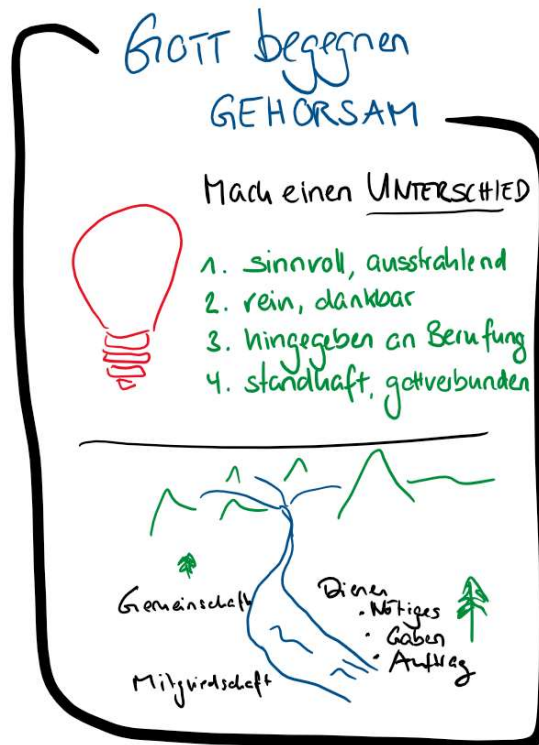 GOTT begegnen
GEHORSAM
Mach einen UNTERSCHIED
1. sinnvoll, ausstrahlend
2. rein, dankbar
3. hingegeben an Berufung
4. standhaft, gottverbunden
Gemeinschaft
Mitgliedschaft
Dienen
• Nötiges
• Gaben
• Auftrag